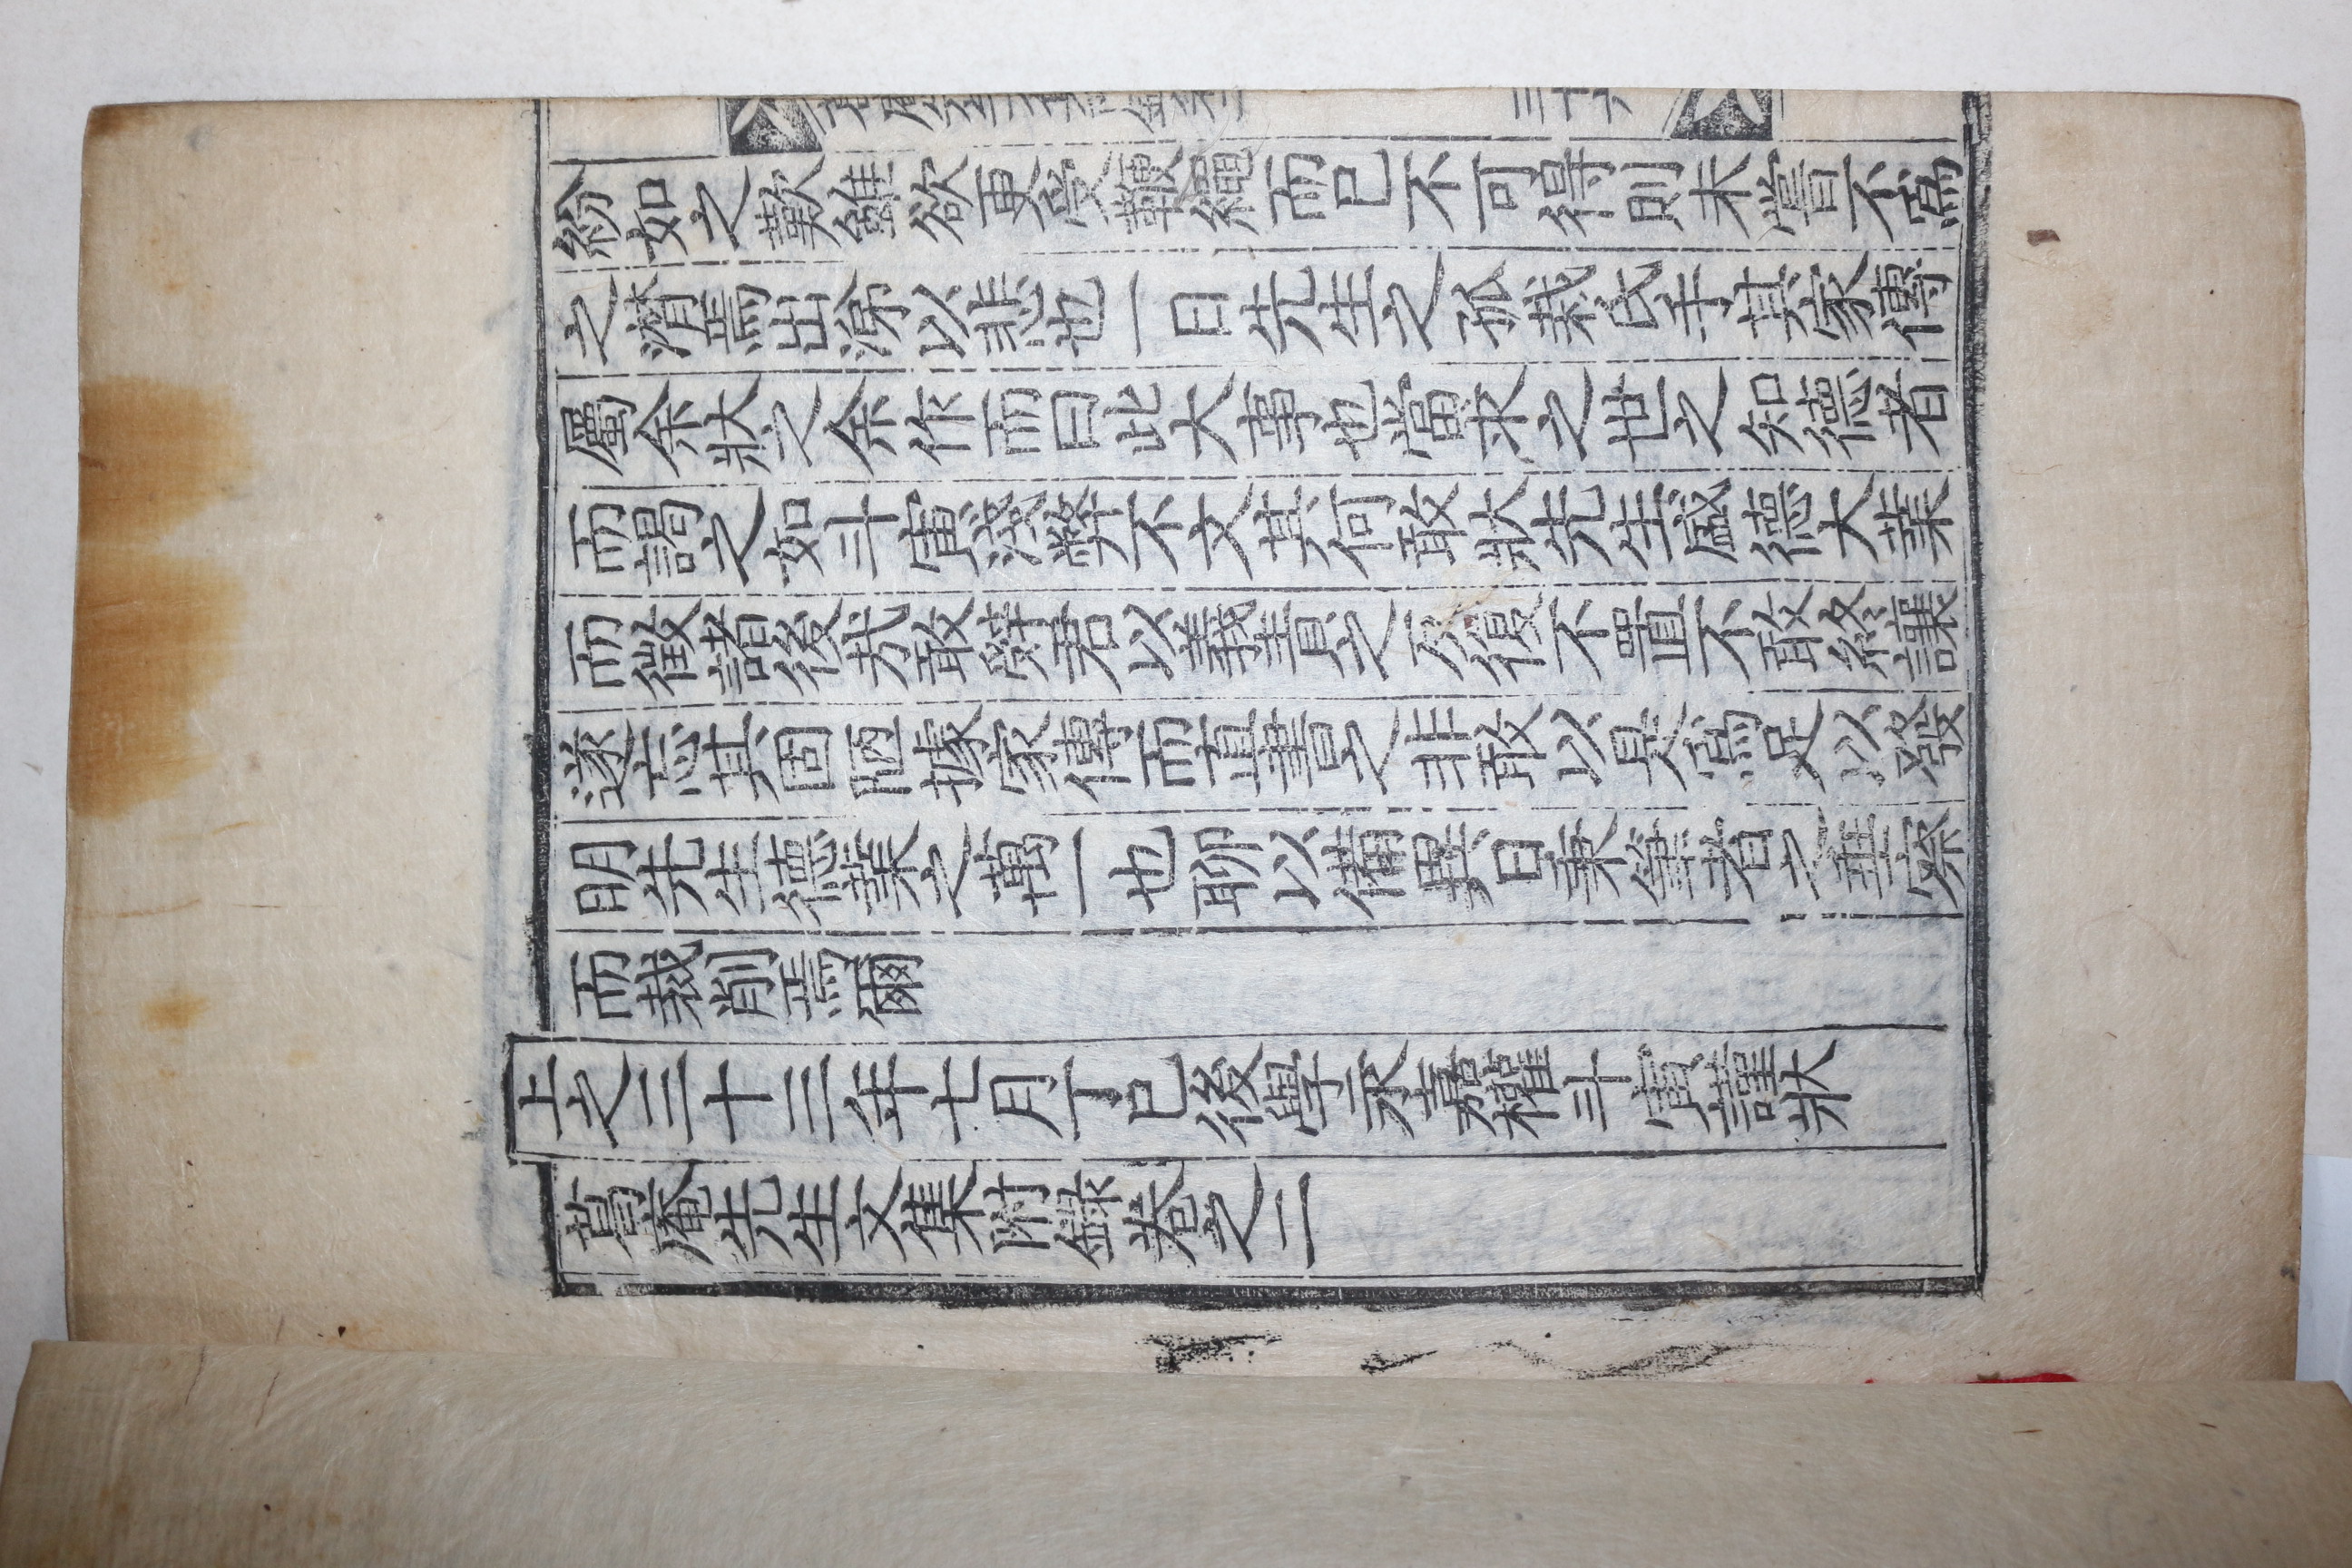 紛如之歎雖欲更受鞭繩而已不可得則未嘗不爲
之潸焉出涕以悲也一日先生之孤栽氏手其家傳
屬余狀之余作而曰此大事也當求之世之知德者
而謁之如斗寅淺弊不文其何敢狀先生盛德大業
而徵諸後哉敢辭君以義責之反復不置不敢終讓
遂忘其固陋據家傳而直書之非敢以是爲足以發
明先生德業之萬一也聊以備異日秉筆者之察
而裁削焉爾
上之三十三年七月丁巳後學永嘉權斗寅謹狀
葛庵先生文集附錄卷之二